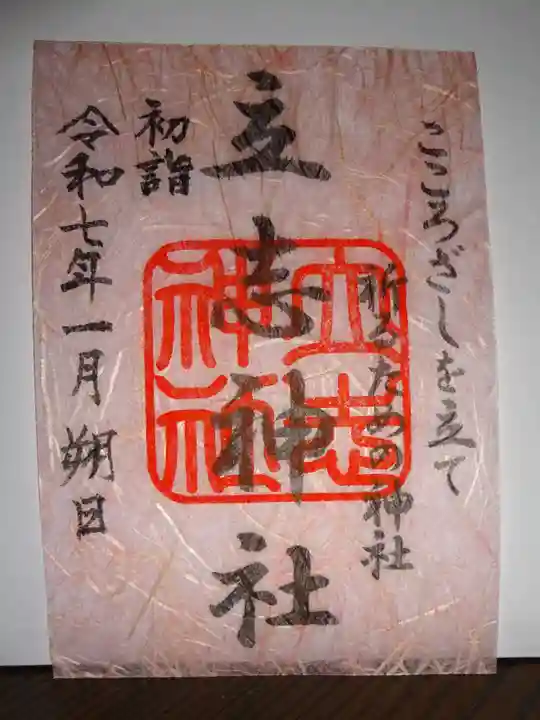 こころざしを立て
祈るための神社
立志神社
立志
神社
初詣
令和七年一月朔日